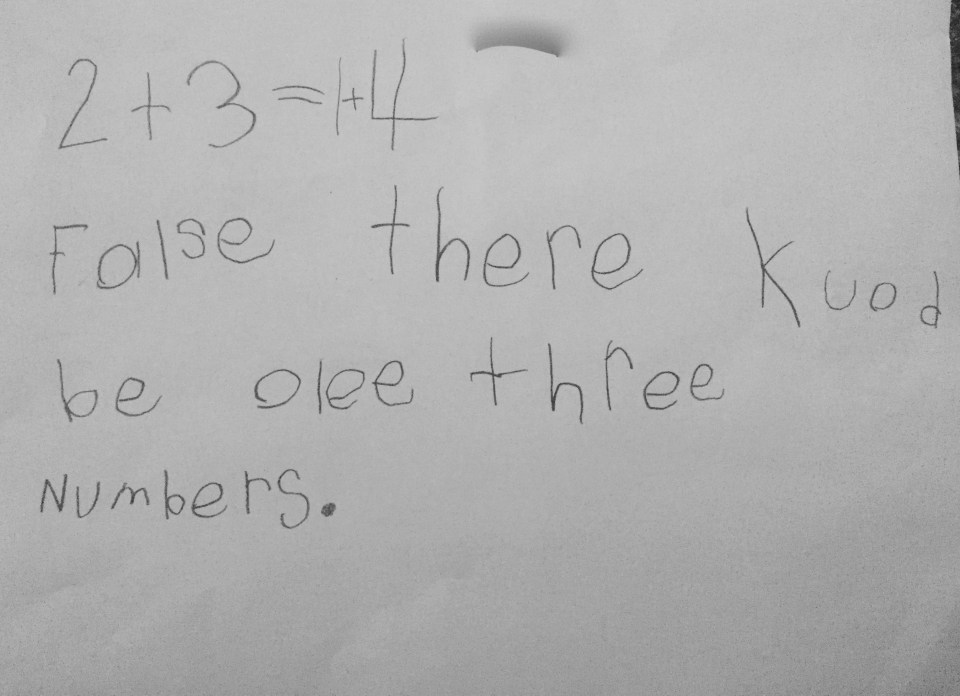 2+3=1+4
False there Kuod
be olee three
Numbers.